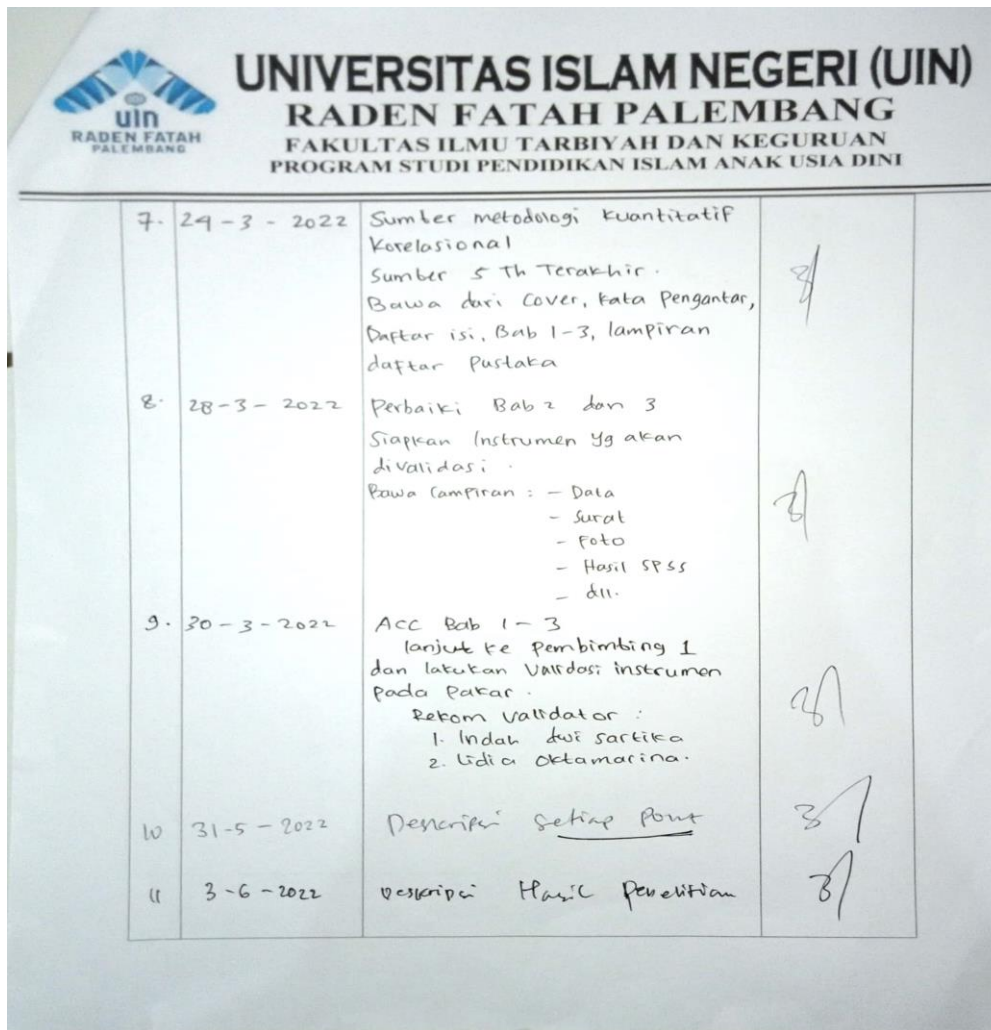 UNIVERSITAS ISLAM NEGERI (UIN)
RADEN FATAH PALEMBANG
FAKULTAS ILMU TARBIYAH DAN KEGURUAN
PROGRAM STUDI PENDIDIKAN ISLAM ANAK USIA DINI
uin
RADEN FATAH
PALEMBANG
7. 29-3-2022 Sumber metodologi kuantitatif
Korelasional
Sumber 5 Th Terakhir.
Bawa dari Cover, Kata Pengantar,
Daftar isi, Bab 1-3, lampiran
daftar Pustaka
8. 28-3-2022 Perbaiki Bab 2 dan 3
Siapkan Instrumen yg akan
divalidasi.
Bawa Lampiran : - Data
- Surat
- Foto
- Hasil SPSS
- dll.
9. 30-3-2022 Acc Bab 1-3
lanjut ke Pembimbing 1
dan lakukan Validasi instrumen
pada Pakar.
Rekom Validator :
1. Indah dwi sartika
2. Lidia Oktamarina.
10 31-5-2022 Deskripsi Setiap Point
11 3-6-2022 Deskripsi Hasil Penelitian